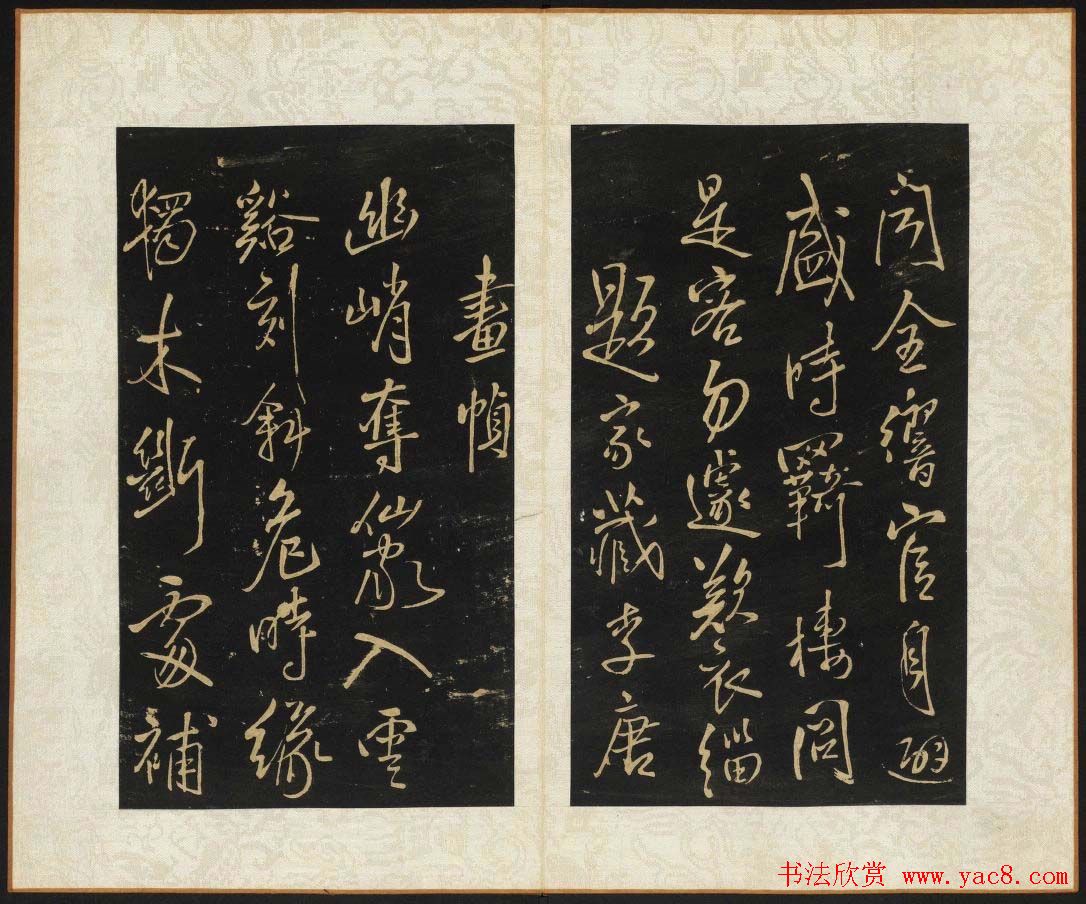 全響官自
盛時羇棲同
是客勿遽歎衣緇
題家藏李唐
畫幀
幽峭奪仙家入雲
谿刻斜危時緣
獨木斷處補
书法欣赏 www.yac8.com